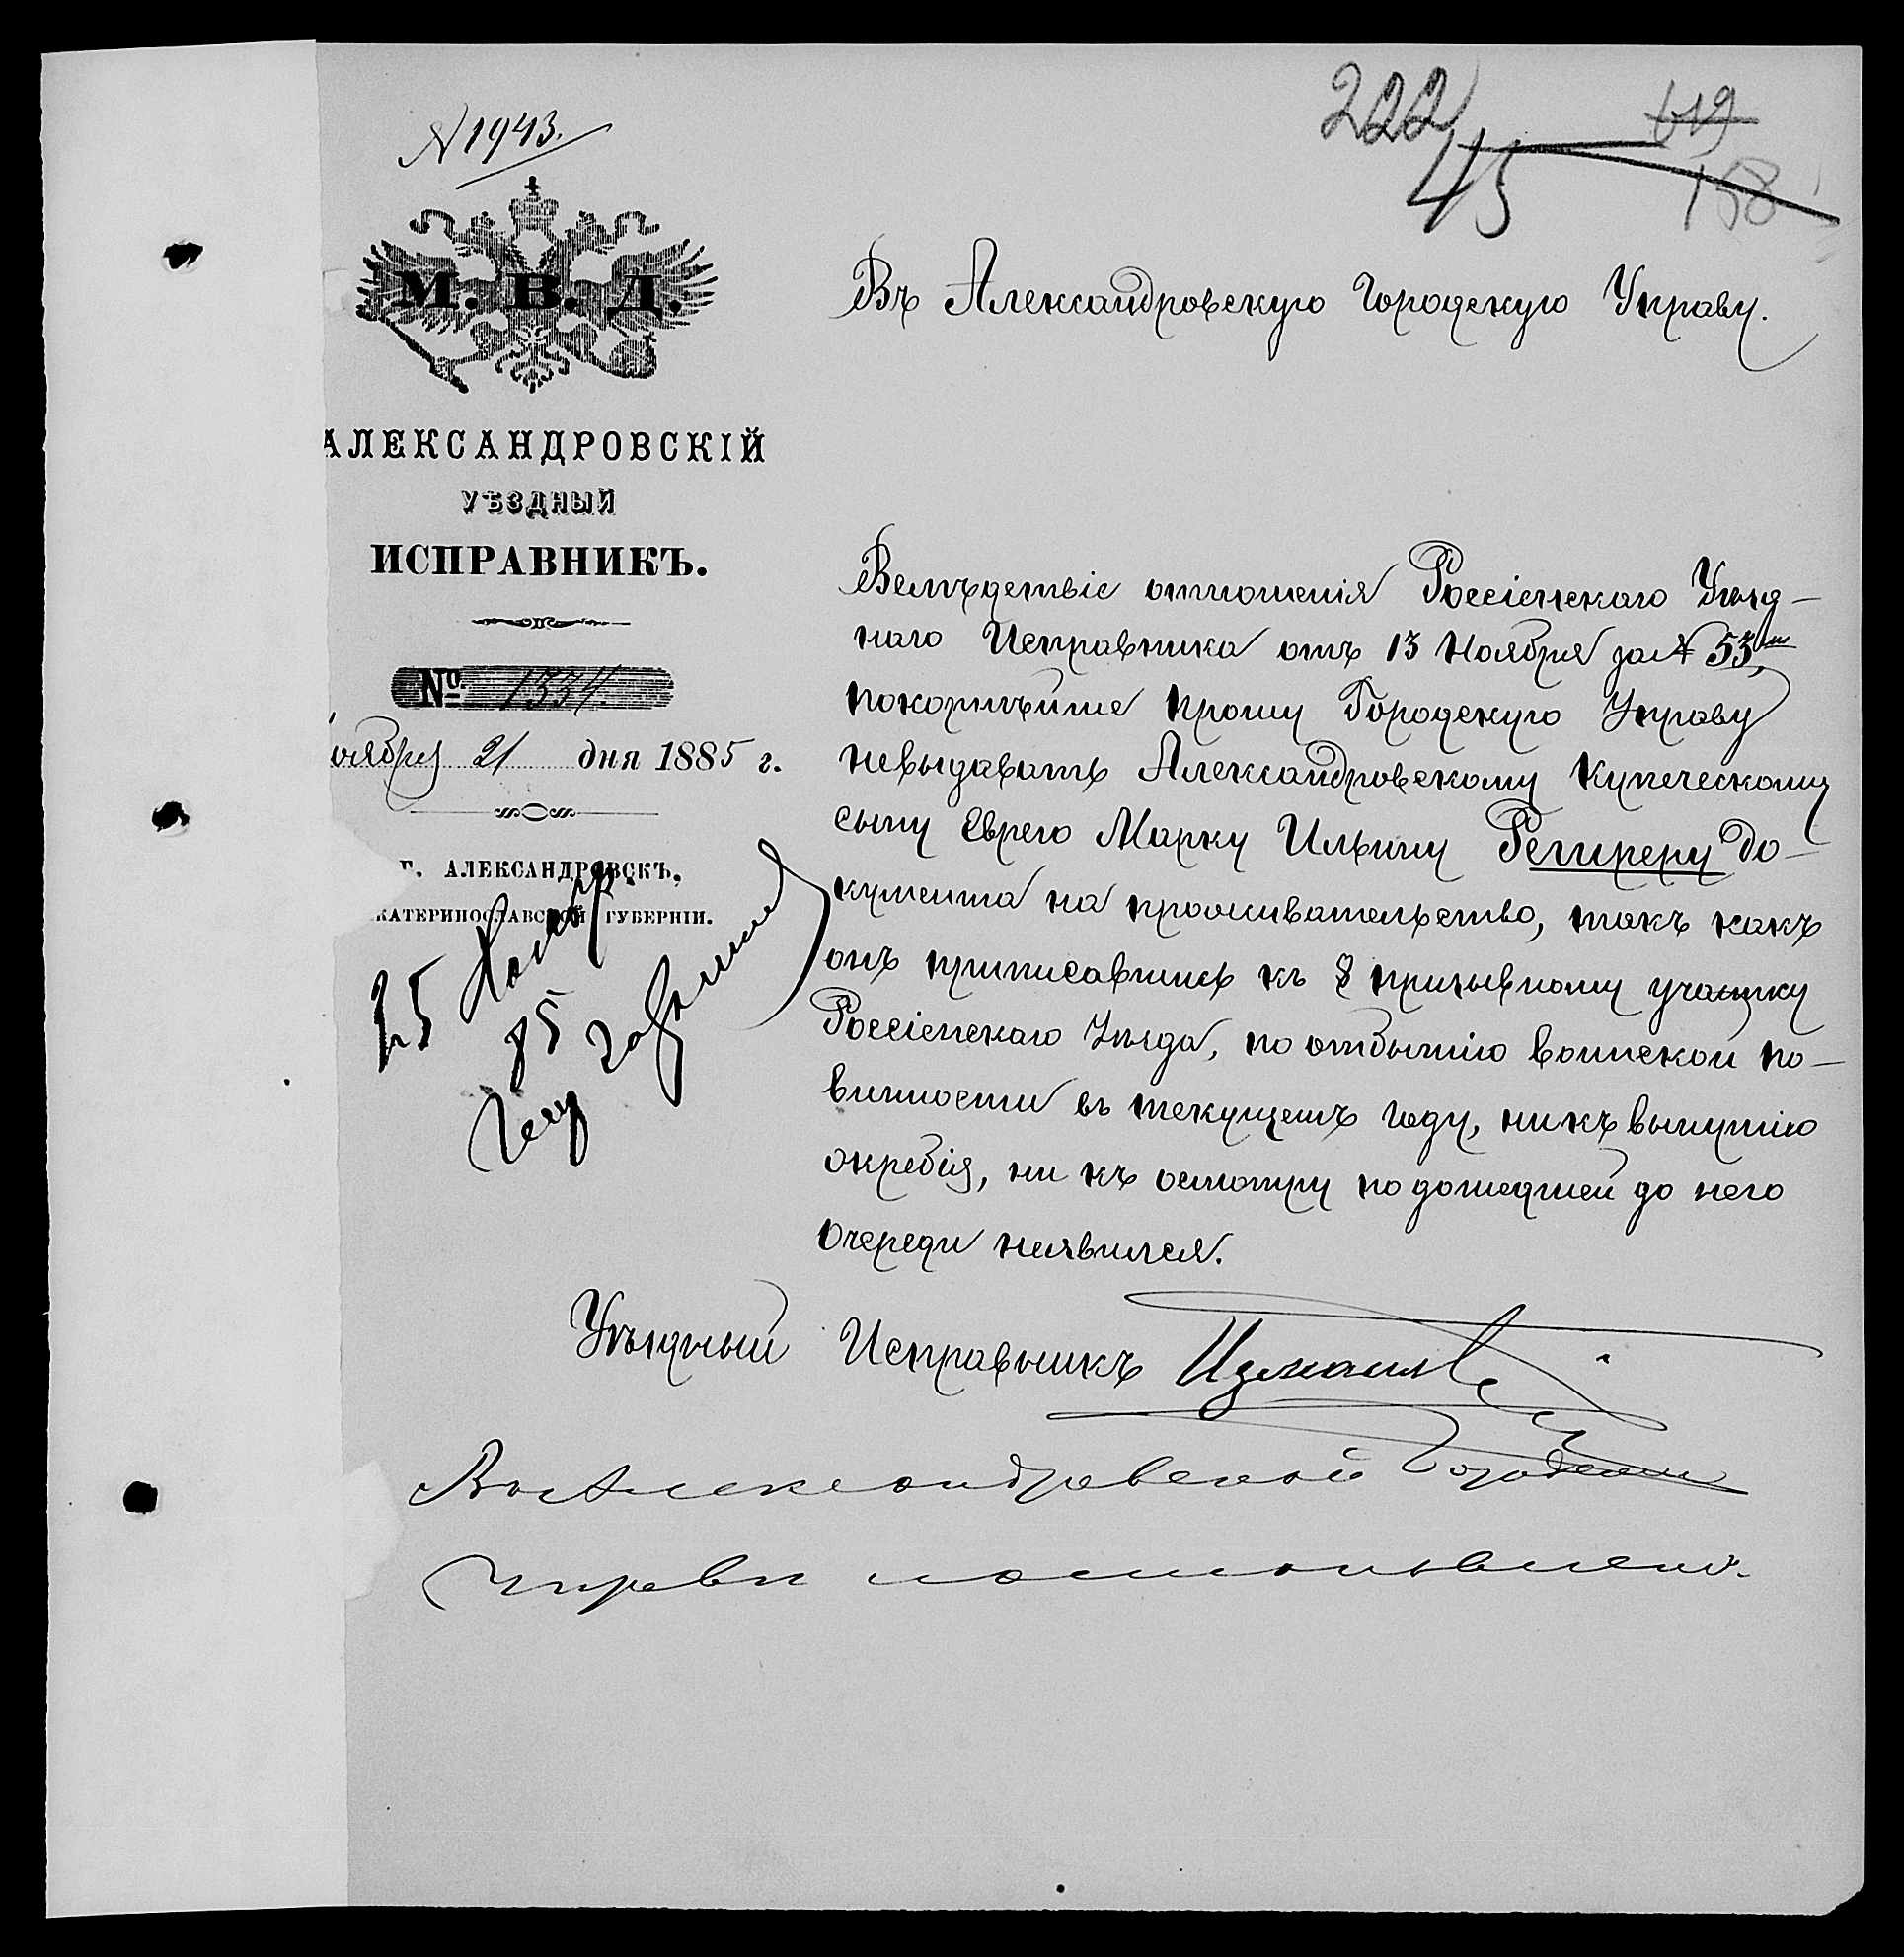 222
619
45
158
№ 1943.
М. В. Д.
АЛЕКСАНДРОВСКІЙ
УѢЗДНЫЙ
ИСПРАВНИКЪ.
№ 1334.
оября 21 дня 1885 г.
Г. АЛЕКСАНДРОВСКЪ,
КАТЕРИНОСЛАВСКОЙ ГУБЕРНІИ.
25 Ноябр.
85
Въ Александровскую Городскую Управу.
Вслѣдствіе отношенія Россіенскаго Уѣзд-
наго Исправника отъ 13 Ноября за № 53,
покорнѣйше прошу Городскую Управу
невыдавать Александровскому купеческому
сыну Еврею Марку Ильину до-
кумента на проживательство, такъ какъ
онъ приписавшись къ 8 призывному участку
Россіенскаго Уѣзда, по отбытію воинской по-
винности въ текущемъ году, ни къ вынутію
жребія, ни къ осмотру по дошедшей до него
очереди неявился.
Уѣздный Исправникъ
Въ Александровской Городской
Управы